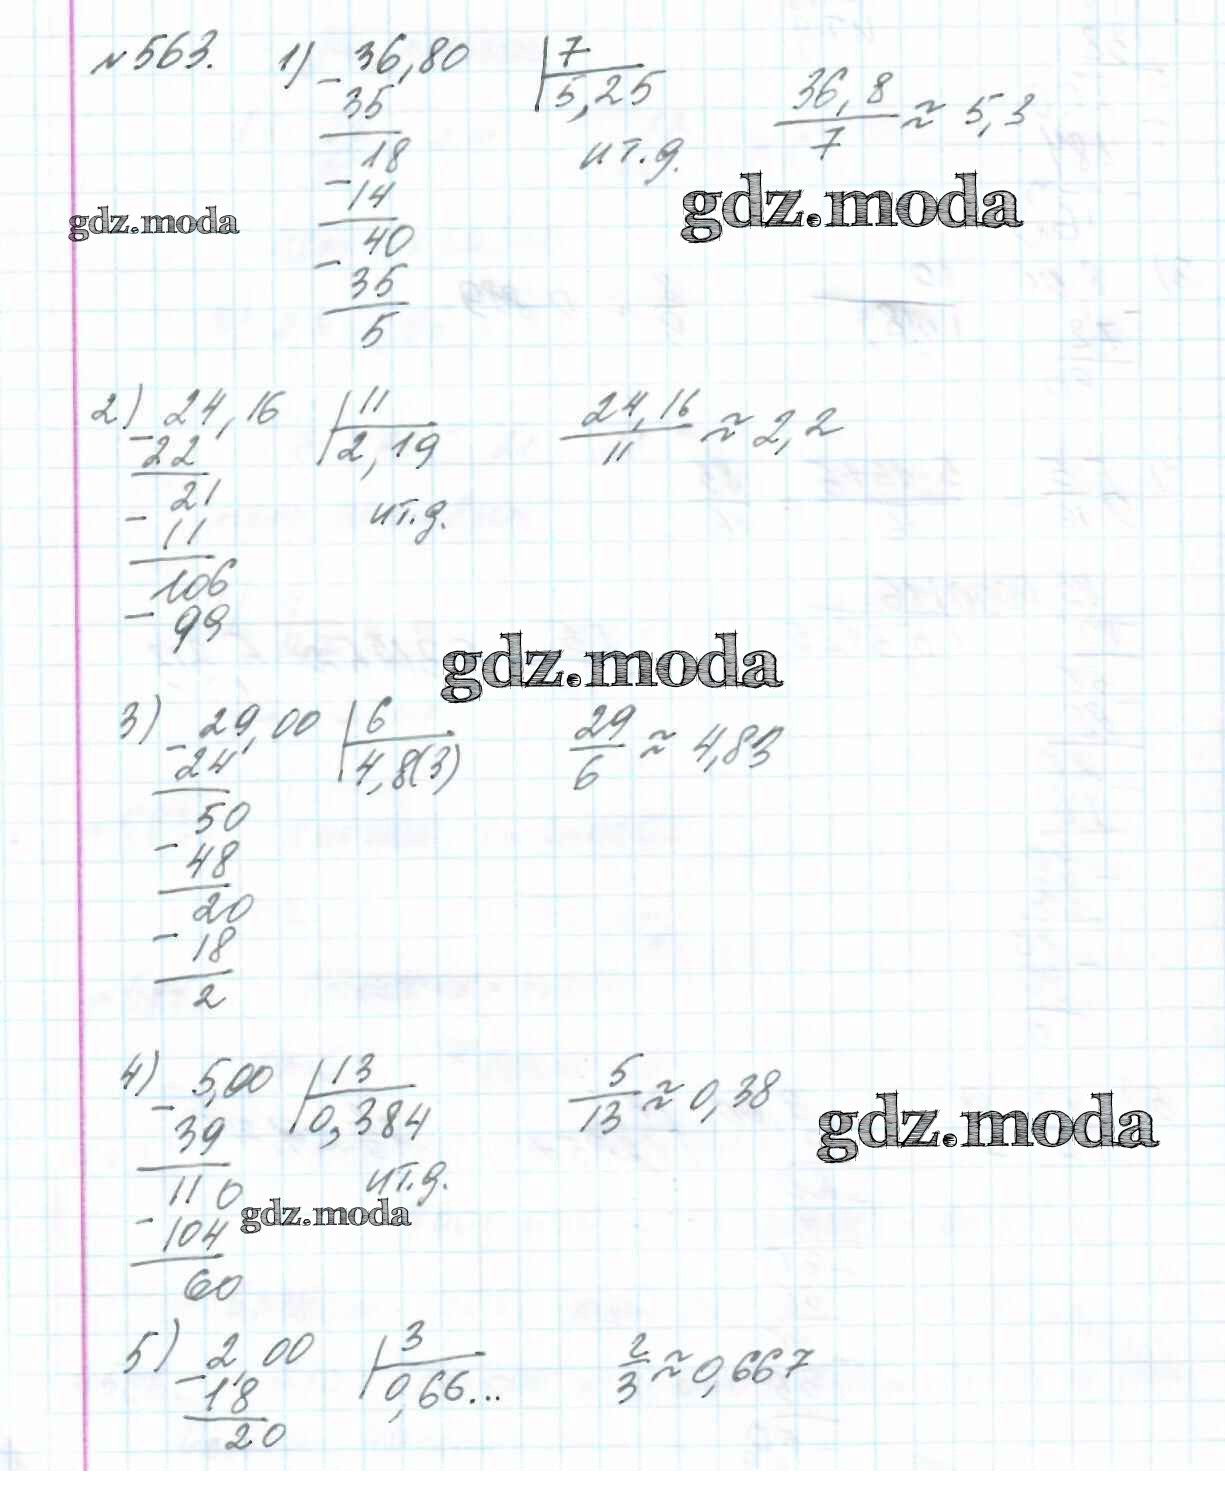 №563. 1) 36,80 | 7
- 35 | 5,25 36,8/7 ≈ 5,3
18 ит.д.
- 14 gdz.moda
gdz.moda
40
- 35
5
2) 24,16 | 11 24,16/11 ≈ 2,2
- 22 | 2,19
21 ит.д.
- 11
106
- 99
gdz.moda
3) 29,00 | 6 29/6 ≈ 4,83
- 24 | 4,8(3)
50
- 48
20
- 18
2
4) 5,00 | 13 5/13 ≈ 0,38
- 39 | 0,384 gdz.moda
110 ит.д.
gdz.moda
- 104
60
5) 2,00 | 3 2/3 ≈ 0,667
- 18 | 0,66...
20